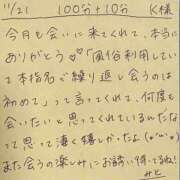 11/21 100分+10分 K様
今月も会いに来てくれて、本当に
ありがとう♡♡「風俗利用していて
本指名で繰り返し会うのは
初めて」って言ってくれて、何度も
会いたいと思ってくれているんだな
って思って凄く嬉しかったよ(o^∀^o)
また会うの楽しみにお誘い待ってるね!
みと